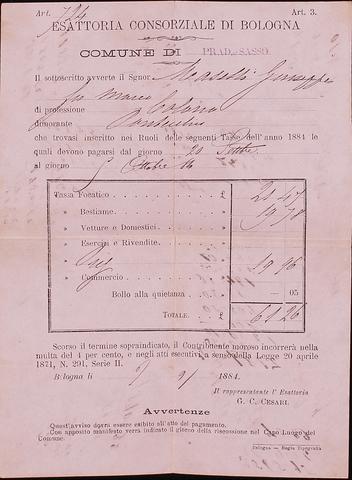 Art. 794 Art. 3.
ESATTORIA CONSORZIALE DI BOLOGNA
COMUNE DI PRAD. SASSO.
Il sottoscritto avverte il Signor Masetti Giuseppe
fu Marco
di professione Colono
dimorante
che trovasi inscritto nei Ruoli delle seguenti Tasse dell'anno 1884 le
quali devono pagarsi dal giorno 20 Settre
al giorno 5 Ottobre
Tassa Focatico . . . . . . . . . . £
» Bestiame. . . . . . . . . . . »
» Vetture e Domestici. . . . . . »
» Esercini e Rivendite. . . . . . »
»
Commercio . . . . . . . . . . » 19 96
Bollo alla quietanza . . . . . . » — 05
TOTALE. . . . £ 61 26
Scorso il termine sopraindicato, il Contribuente moroso incorrerà nella
multa del 4 per cento, e negli atti esecutivi a senso della Legge 20 aprile
1871, N. 291, Serie II.
Bologna li 9 1884.
Il rappresentante l'Esattoria
G. C. CESARI.
Avvertenze
Quest'avviso dovrà essere esibito all'atto del pagamento.
Con apposito manifesto verrà indicato il giorno della riscossione nel Capo Luogo del
Comune.
Bologna — Regia Tipografia